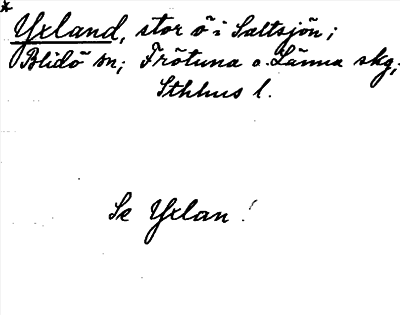 * Yxland, stor ö i Saltsjön;
Blidö sn; Frötuna o. Länna skg;
Sthlms l.
Se Yxlan!